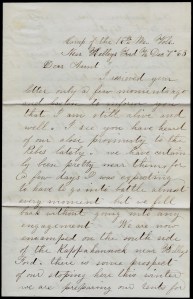 Camp of the 15th Me Vols
Near Kellys Ford Va Dec 7th 63
Dear Aunt
I received your
letter only a few moments ago
and hasten to inform you
that I am still alive and
well. I see you have heard
of our close proximity to the
Rebs lately. We have certainly
been pretty near them for
a few days I was expecting
to have to go into battle almost
every moment but we fell
back without going into any
engagement. We are now
encamped on the north side
of the Rappahannock near Kellys
Ford. there is some prospect
of our stoping here this winter
we are preparing our tents for